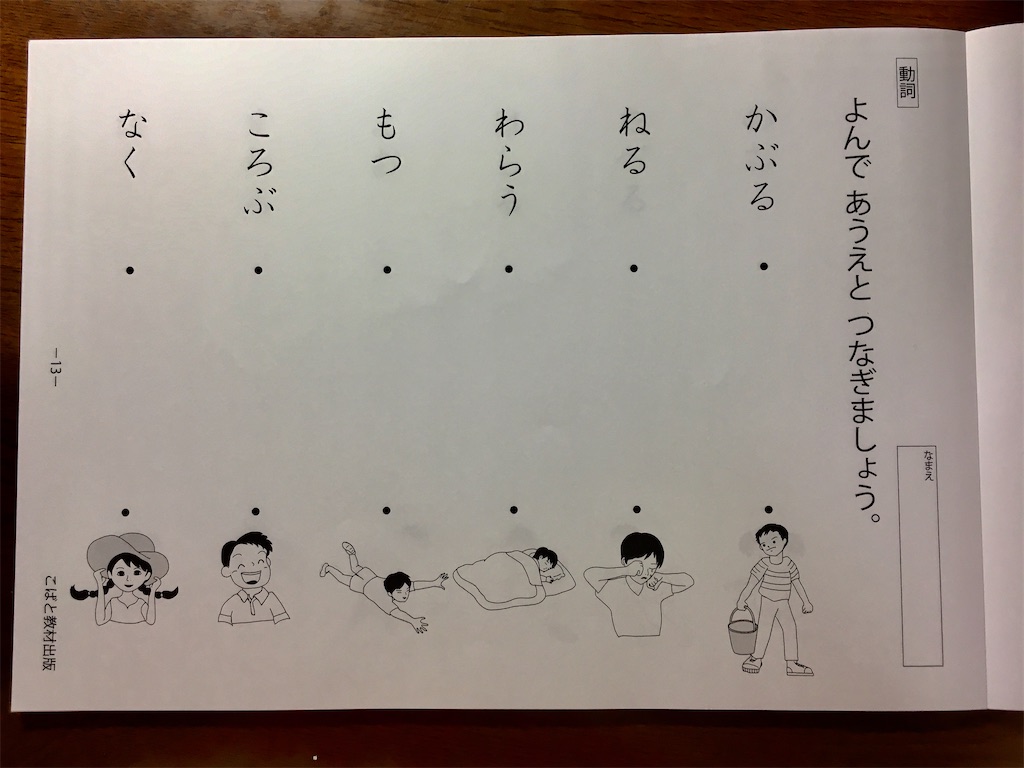 動詞
なまえ
よんで あうえと つなぎましょう。
かぶる
ねる
わらう
もつ
ころぶ
なく
—13—
こばと教材出版